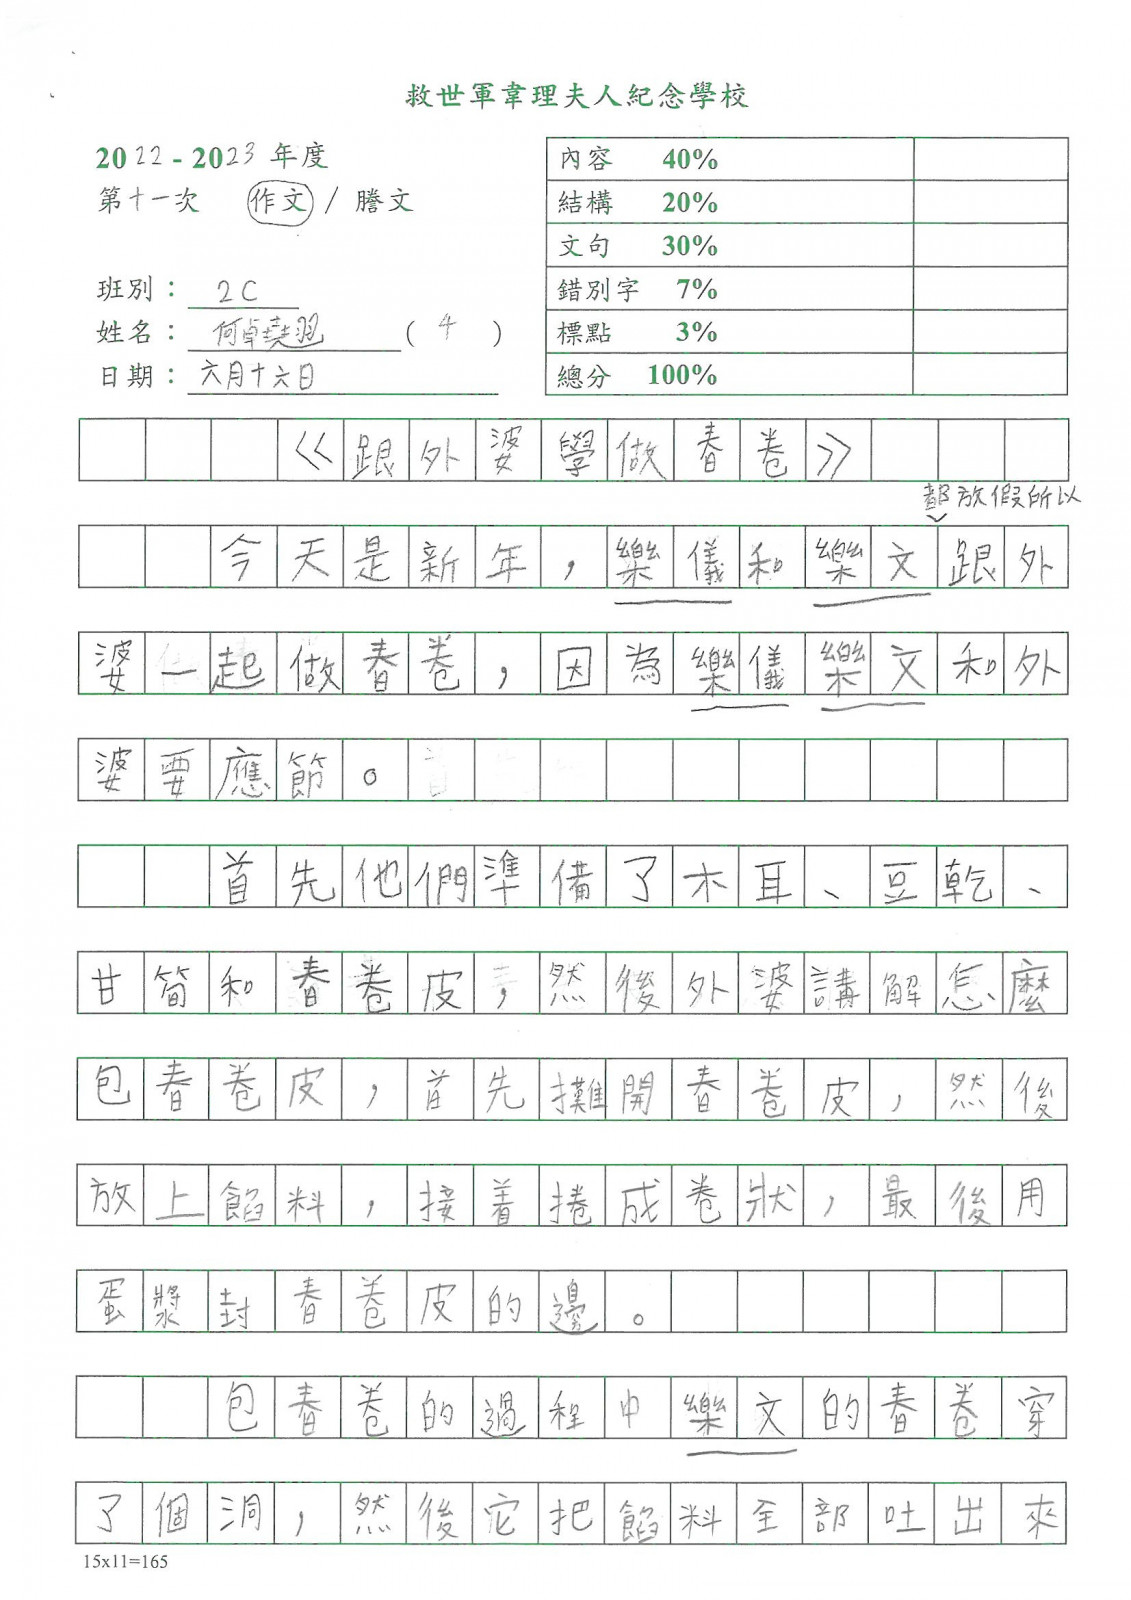 救世軍韋理夫人紀念學校
2022-2023年度
第十一次 作文 / 謄文
班別： 2C
姓名： (4)
日期： 六月十六日
內容 40%
結構 20%
文句 30%
錯別字 7%
標點 3%
總分 100%
《跟外婆學做春卷》
都放假所以
今天是新年，樂儀和樂文跟外
婆一起做春卷，因為樂儀樂文和外
婆要應節。
首先他們準備了木耳、豆乾、
甘筍和春卷皮，然後外婆講解怎麼
包春卷皮，首先攤開春卷皮，然後
放上餡料，接着捲成卷狀，最後用
蛋漿封春卷皮的邊。
包春卷的過程中樂文的春卷穿
了個洞，然後它把餡料全部吐出來
15x11=165